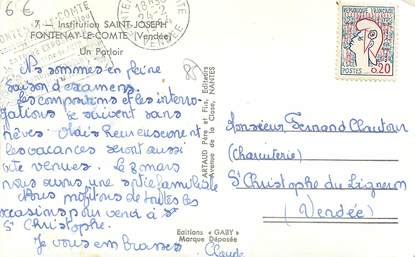 6€
7 - Institution SAINT-JOSEPH
FONTENAY-LE-COMTE (Vendée)
Un Parloir
Ns sommes en pleine
saison d'examens.
Les compositions et les interro-
gations se suivent sans
trêves. Mais heureusement
les vacances seront aussi
vite venues. Le 8 mars
nous avons une sortie familiale
Nous profitons de toutes les
occasions pour venir à St
St Christophe.
Je vous embrasse
Claude
Editions « GABY »
Marque Déposée
ARTAUD Père et Fils, Editeurs
Avenue de la Close, NANTES
REPUBLIQUE FRANCAISE
POSTES 0,20
Monsieur Fernand Clautour
(Charcuterie)
St Christophe du Ligneron
(Vendée)